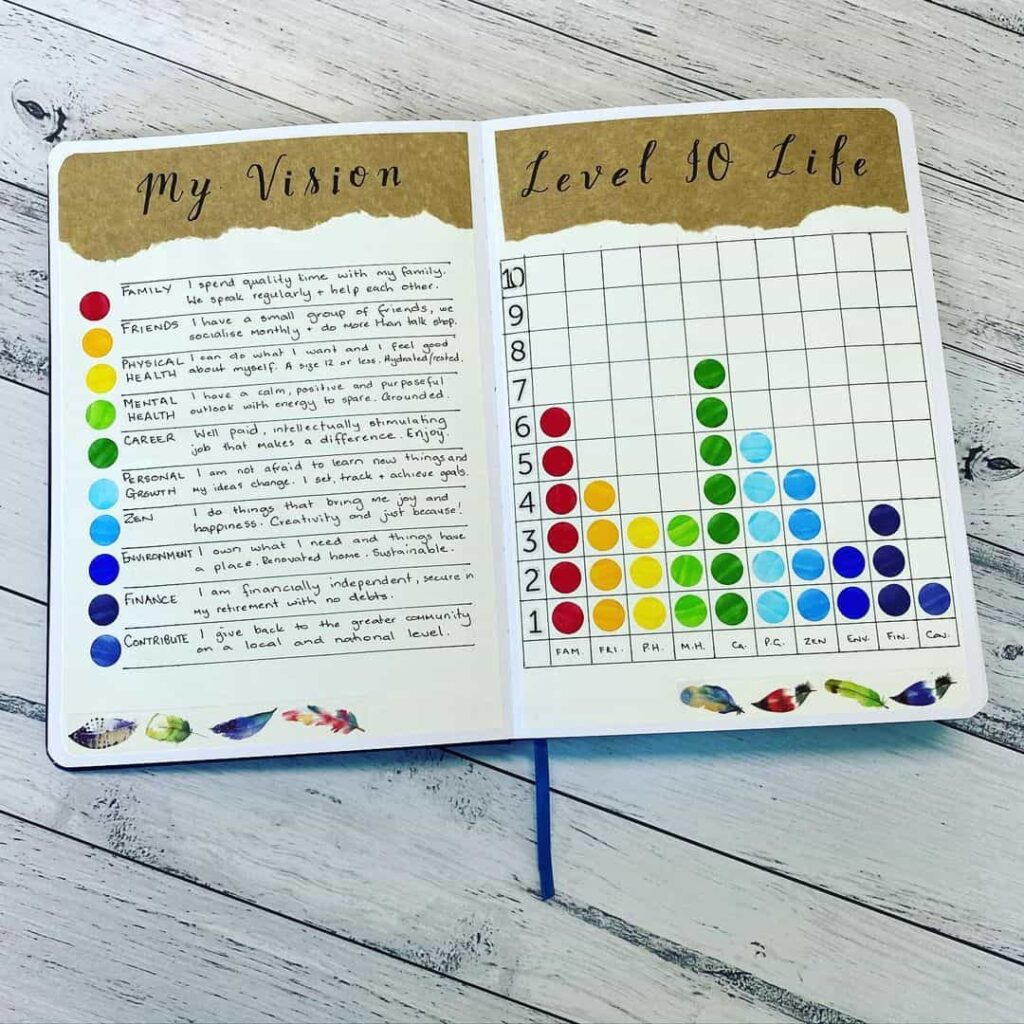 My Vision
FAMILY I spend quality time with my family.
We speak regularly + help each other.
FRIENDS I have a small group of friends, we
socialise monthly + do more than talk shop.
PHYSICAL I can do what I want and I feel good
HEALTH about myself. A size 12 or less. Hydrated/rested.
MENTAL I have a calm, positive and purposeful
HEALTH outlook with energy to spare. Grounded.
CAREER Well paid, intellectually stimulating
job that makes a difference. Enjoy.
PERSONAL I am not afraid to learn new things and
GROWTH my ideas change. I set, track + achieve goals.
ZEN I do things that bring me joy and
happiness. Creativity and just because!
ENVIRONMENT I own what I need and things have
a place. Renovated home. Sustainable.
FINANCE I am financially independent, secure in
my retirement with no debts.
CONTRIBUTE I give back to the greater community
on a local and national level.
Level 10 Life
10
9
8
7
6
5
4
3
2
1
FAM. FRI. P.H. M.H. Ca. P.G. ZEN ENV. FIN. Con.